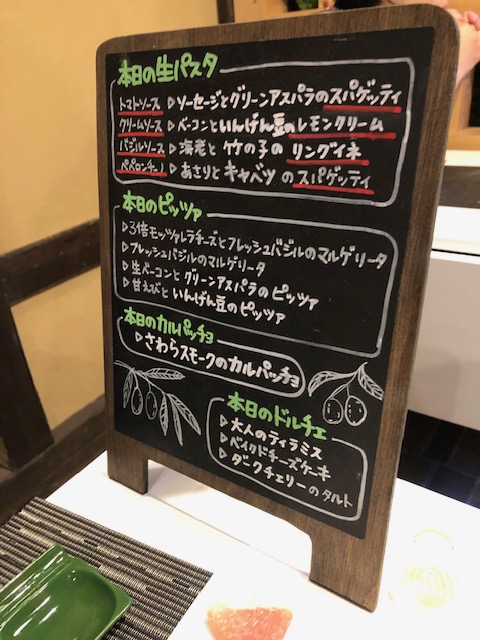 本日の生パスタ
トマトソース ▷ソーセージとグリーンアスパラのスパゲッティ
クリームソース ▷ベーコンといんげん豆のレモンクリーム
バジルソース ▷海老と竹の子のリングイネ
ペペロンチーノ ▷あさりとキャベツのスパゲッティ
本日のピッツァ
▷3倍モッツァレラチーズとフレッシュバジルのマルゲリータ
▷フレッシュバジルのマルゲリータ
▷生ベーコンとグリーンアスパラのピッツァ
▷甘えびといんげん豆のピッツァ
本日のカルパッチョ
▷さわらスモークのカルパッチョ
本日のドルチェ
▷大人のティラミス
▷ベイクドチーズケーキ
▷ダークチェリーのタルト